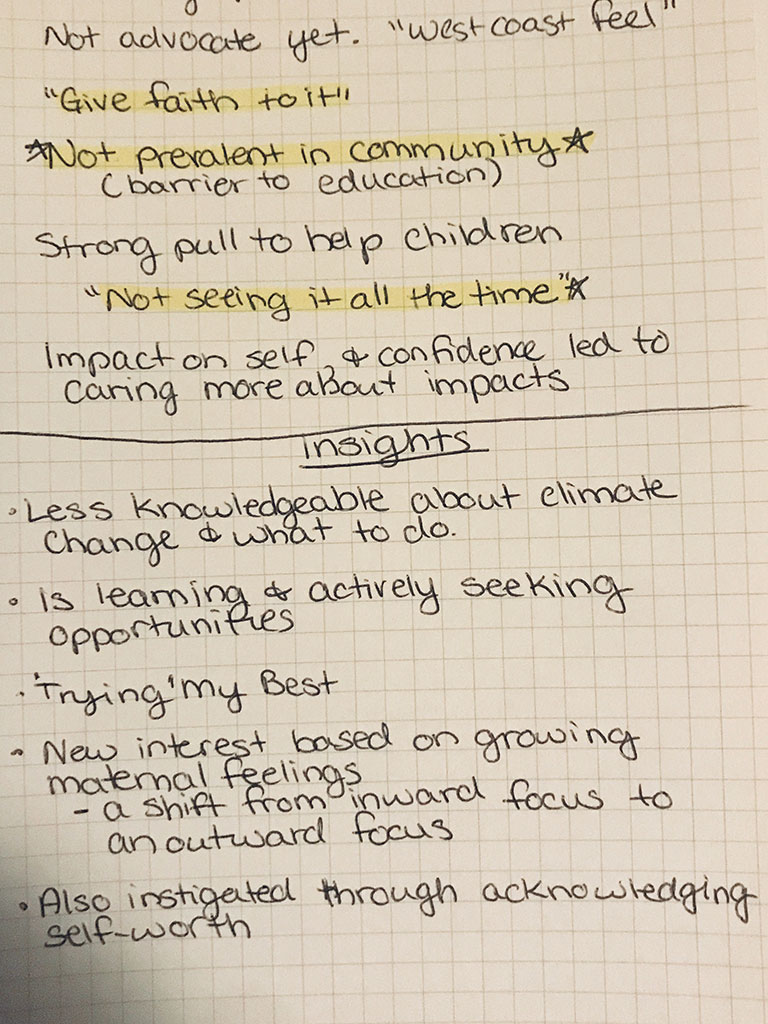 Not advocate yet. "West coast feel"
"Give faith to it"
☆Not prevalent in community☆
(barrier to education)
Strong pull to help children
"Not seeing it all the time"☆
Impact on self & confidence led to
caring more about impacts
Insights
• Less knowledgeable about climate
change & what to do.
• Is learning & actively seeking
opportunities
• 'Trying' My Best
• New interest based on growing
maternal feelings
- a shift from inward focus to
an outward focus
• Also instigated through acknowledging
self-worth